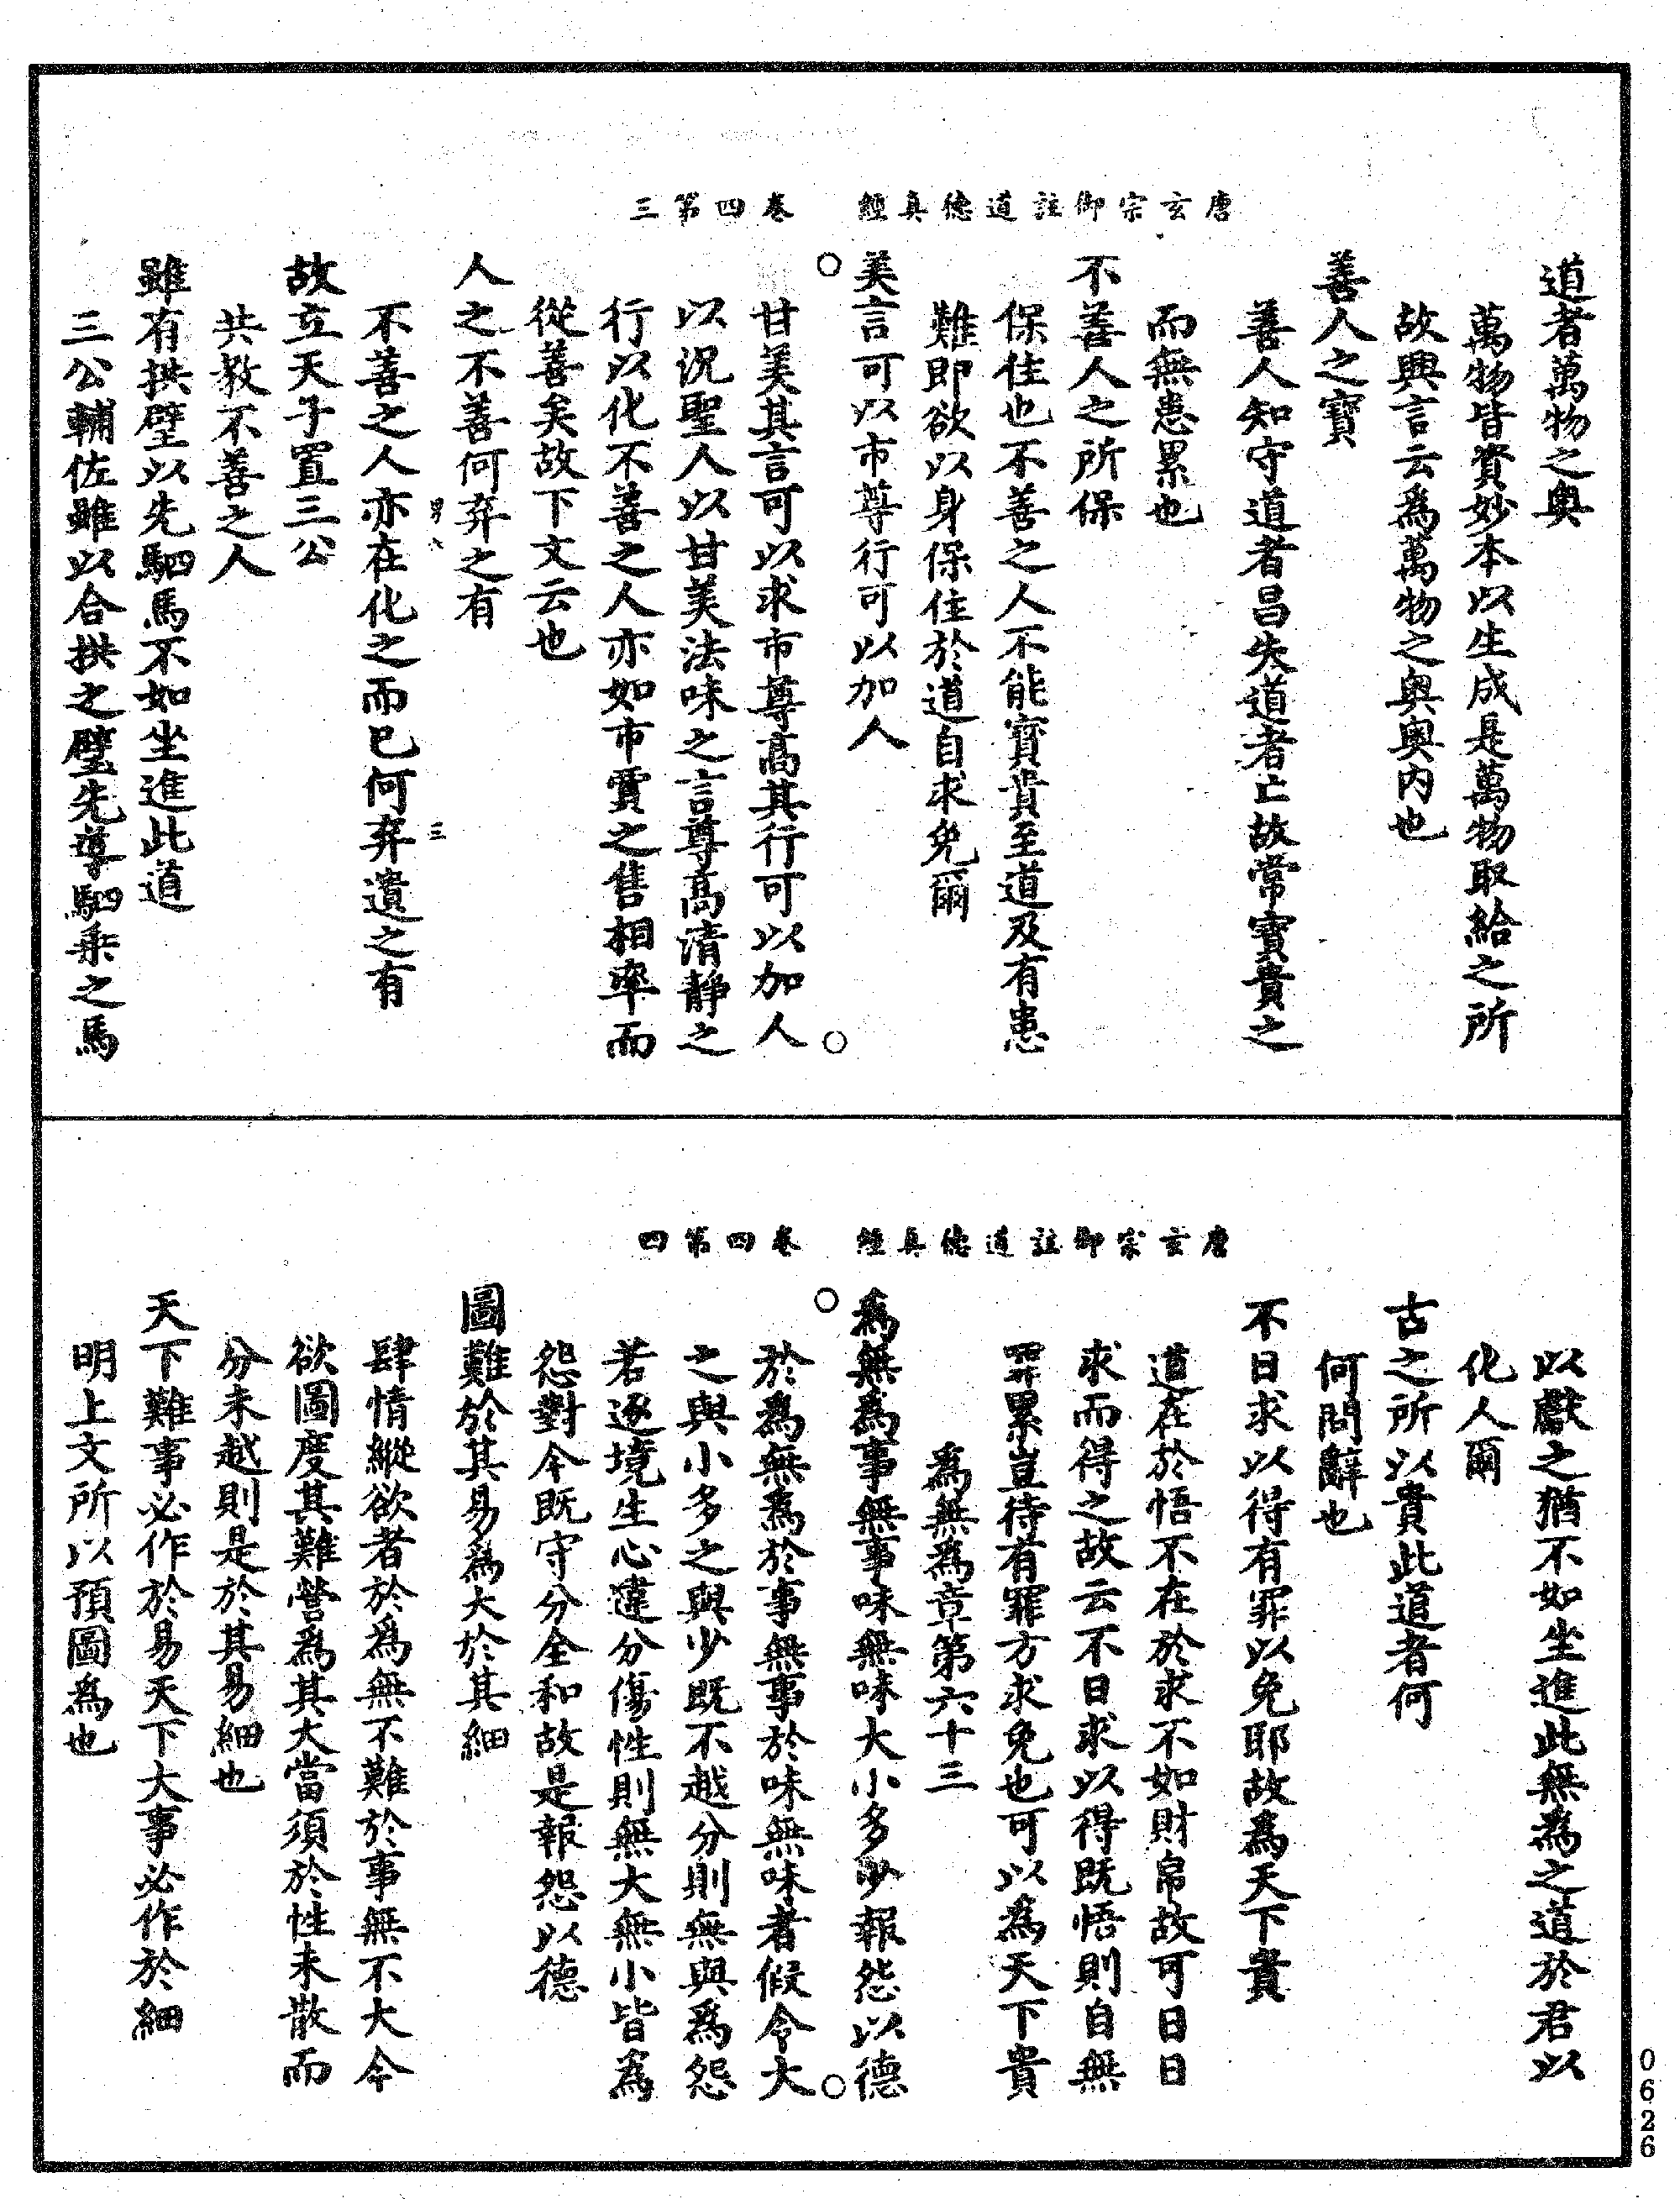 唐玄宗御註道德真經　卷四第三
道者萬物之奧
萬物皆資妙本以生成是萬物取給之所
故興言云為萬物之奧奧內也
善人之寶
善人知守道者昌失道者亡故常寶貴之
而無患累也
不善人之所保
保住也不善之人不能寶貴至道及有患
難即欲以身保住於道自求免爾
美言可以市尊行可以加人
甘美其言可以求市尊高其行可以加人
以況聖人以甘美法味之言尊高清靜之
行以化不善之人亦如市賈之售相率而
從善矣故下文云也
人之不善何弃之有
不善之人亦在化之而已何弃遺之有
故立天子置三公
共教不善之人
雖有拱璧以先駟馬不如坐進此道
三公輔佐雖以合拱之璧先導駟乘之馬
唐玄宗御註道德真經　卷四第四
以獻之猶不如坐進此無為之道於君以
化人爾
古之所以貴此道者何
何問辭也
不日求以得有罪以免耶故為天下貴
道在於悟不在於求不如財帛故可日日
求而得之故云不日求以得既悟則自無
罪累豈待有罪方求免也可以為天下貴
為無為章第六十三
為無為事無事味無味大小多少報怨以德
於為無為於事無事於味無味者假令大
之與小多之與少既不越分則無與為怨
若逐境生心違分傷性則無大無小皆為
怨對今既守分全和故是報怨以德
圖難於其易為大於其細
肆情縱欲者於為無不難於事無不大今
欲圖度其難營為其大當須於性未散而
分未越則是於其易細也
天下難事必作於易天下大事必作於細
明上文所以預圖為也
0626